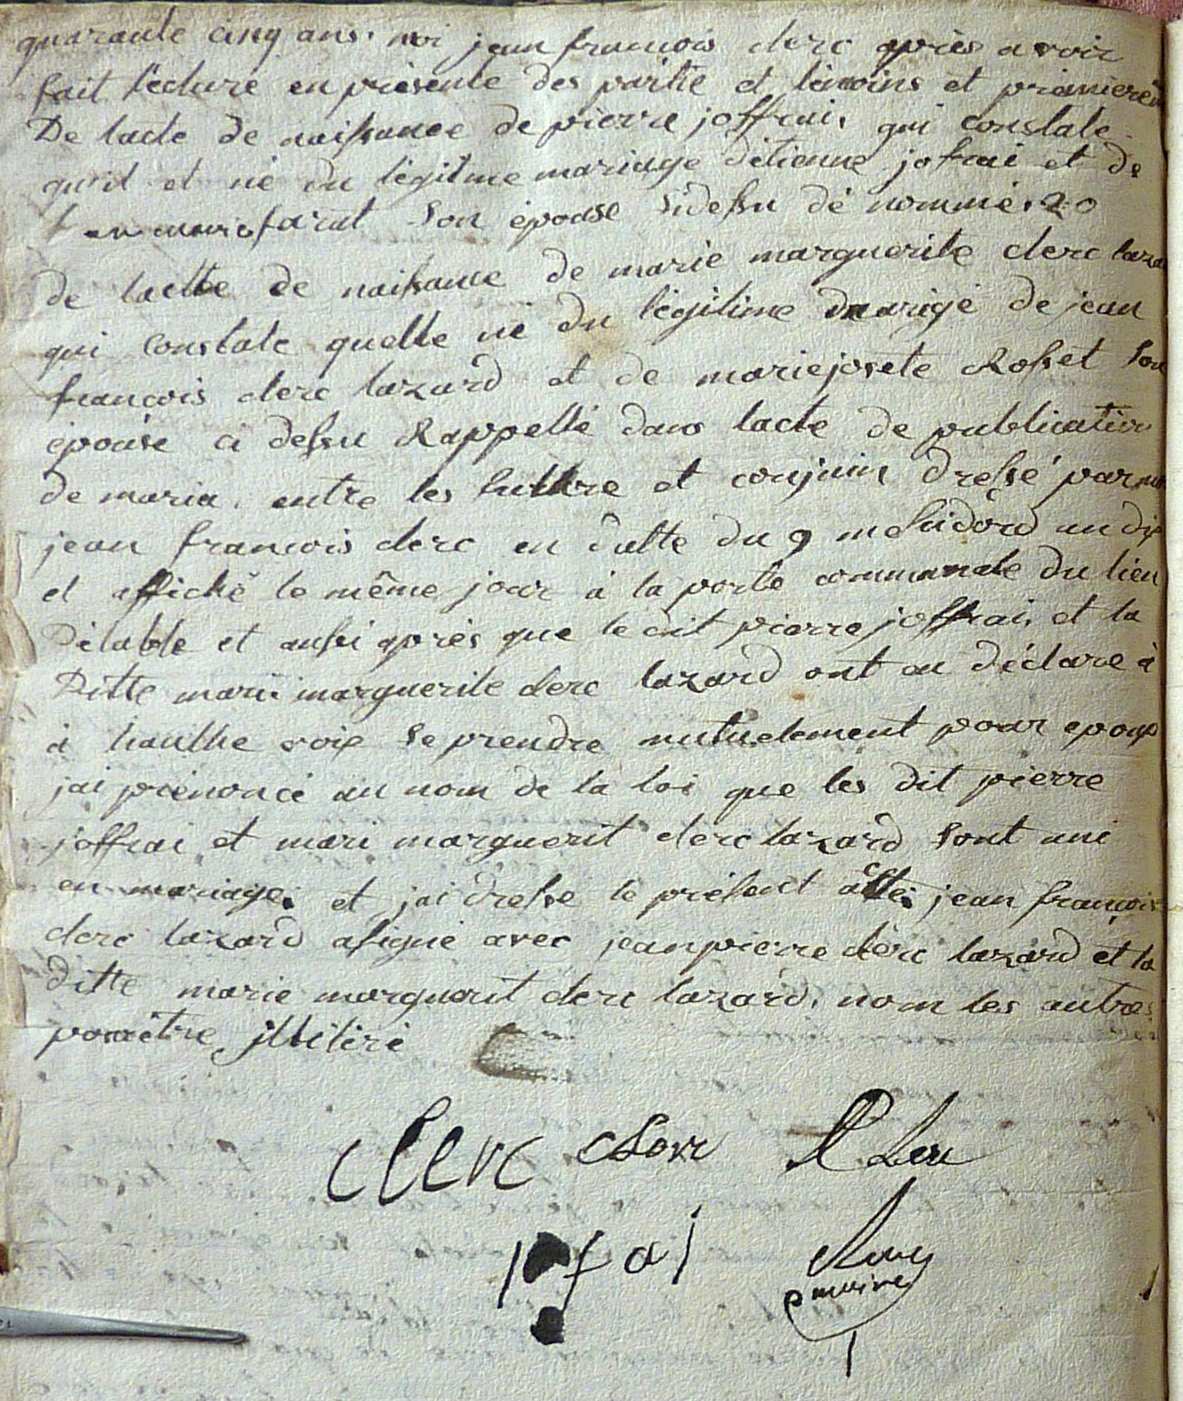 quarante cinq ans. moi jean francois clerc après avoir
fait l'ecture en présente des partie et témoins et premierem
De lacte de naissance de pierre joffrai, qui constate
qu'il et né du légitime mariage détienne jofrai et de
farat son épouse sidessu dé nommé. 2o
de lactte de naissance de marie marguerite clerc laza
qui constate quelle né du légitime mariagé de jean
francois clerc lazard et de marie josete Rosset son
épouse ci dessu Rappellé dans lacte de publication
de maria. entre les futture et conjuin dressé par moi
jean francois clerc en datte du 9 messidord an dix
et affiché le même jour à la porte communale du lieu
Détable et aussi après que le dit pierre joffrai, et la
Ditte marie marguerite clerc lazard ont au déclare à
à hautte voix se prendre mutuelement pour epoux
jai prénoncé au nom de la loi que les dit pierre
joffrai et mari marguerit clerc lazard sont uni
en mariage. et jai dresse le présent actte. jean françois
clerc lazard asigné avec jean pierre clerc lazard et la
ditte marie marguerit clerc lazard. nom les autres
pour être illitéré
Clerc Clerc
maire